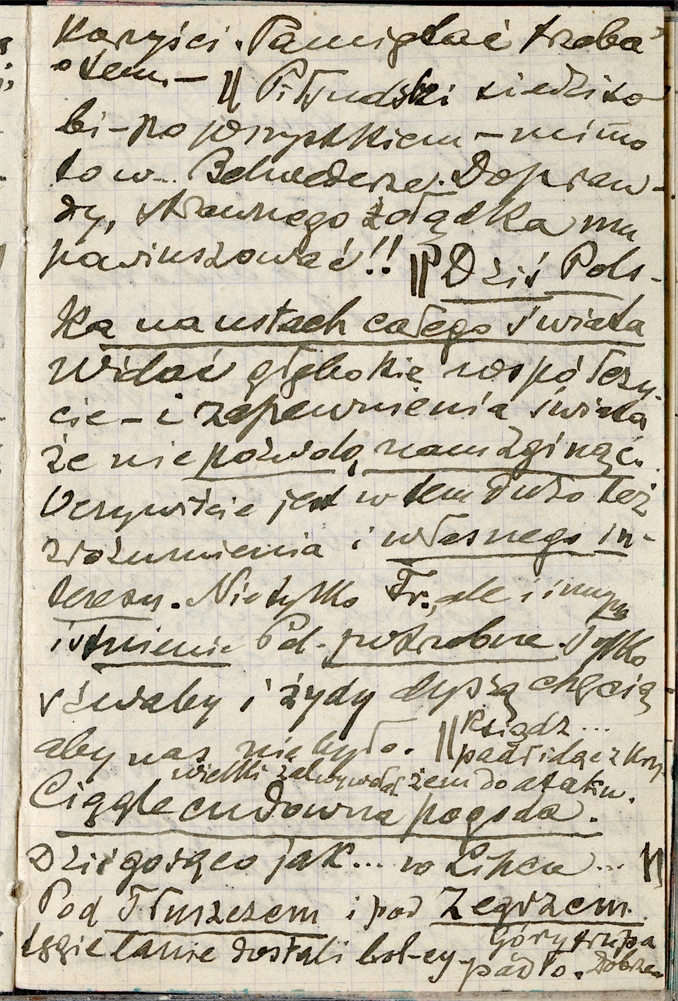 korzyści. Pamiętać trzeba
o tem. — || Piłsudski siedzi so-
bi - po wszystkiem - mimo
to w Belwederze. Dopraw-
dy, strawnego żołądka mu
powinszować!! || Dziś Pols-
ka na ustach całego świata
Widać głębokie współczu-
cie - i zapewnienia świata
że nie pozwolą nam zginąć.
Oczywiście jest w tem dużo też
zrozumienia i własnego in-
teresu. Nietylko Fr., ale i innym
istnienie Pol. potrzebne. Tylko
szwaby i żydy dyszą chęcią
aby nas nie było. || Ksiądz...
padł idąc z krzy-
żem do ataku.
wielki
Ciągle cudowna pogoda.
Dziś gorąco jak... w Lipcu... ||
Pod Tłuszczem i pod Zegrzem
tęgie lanie dostali bol-cy -
Góry trupa
padło. Dobrze.